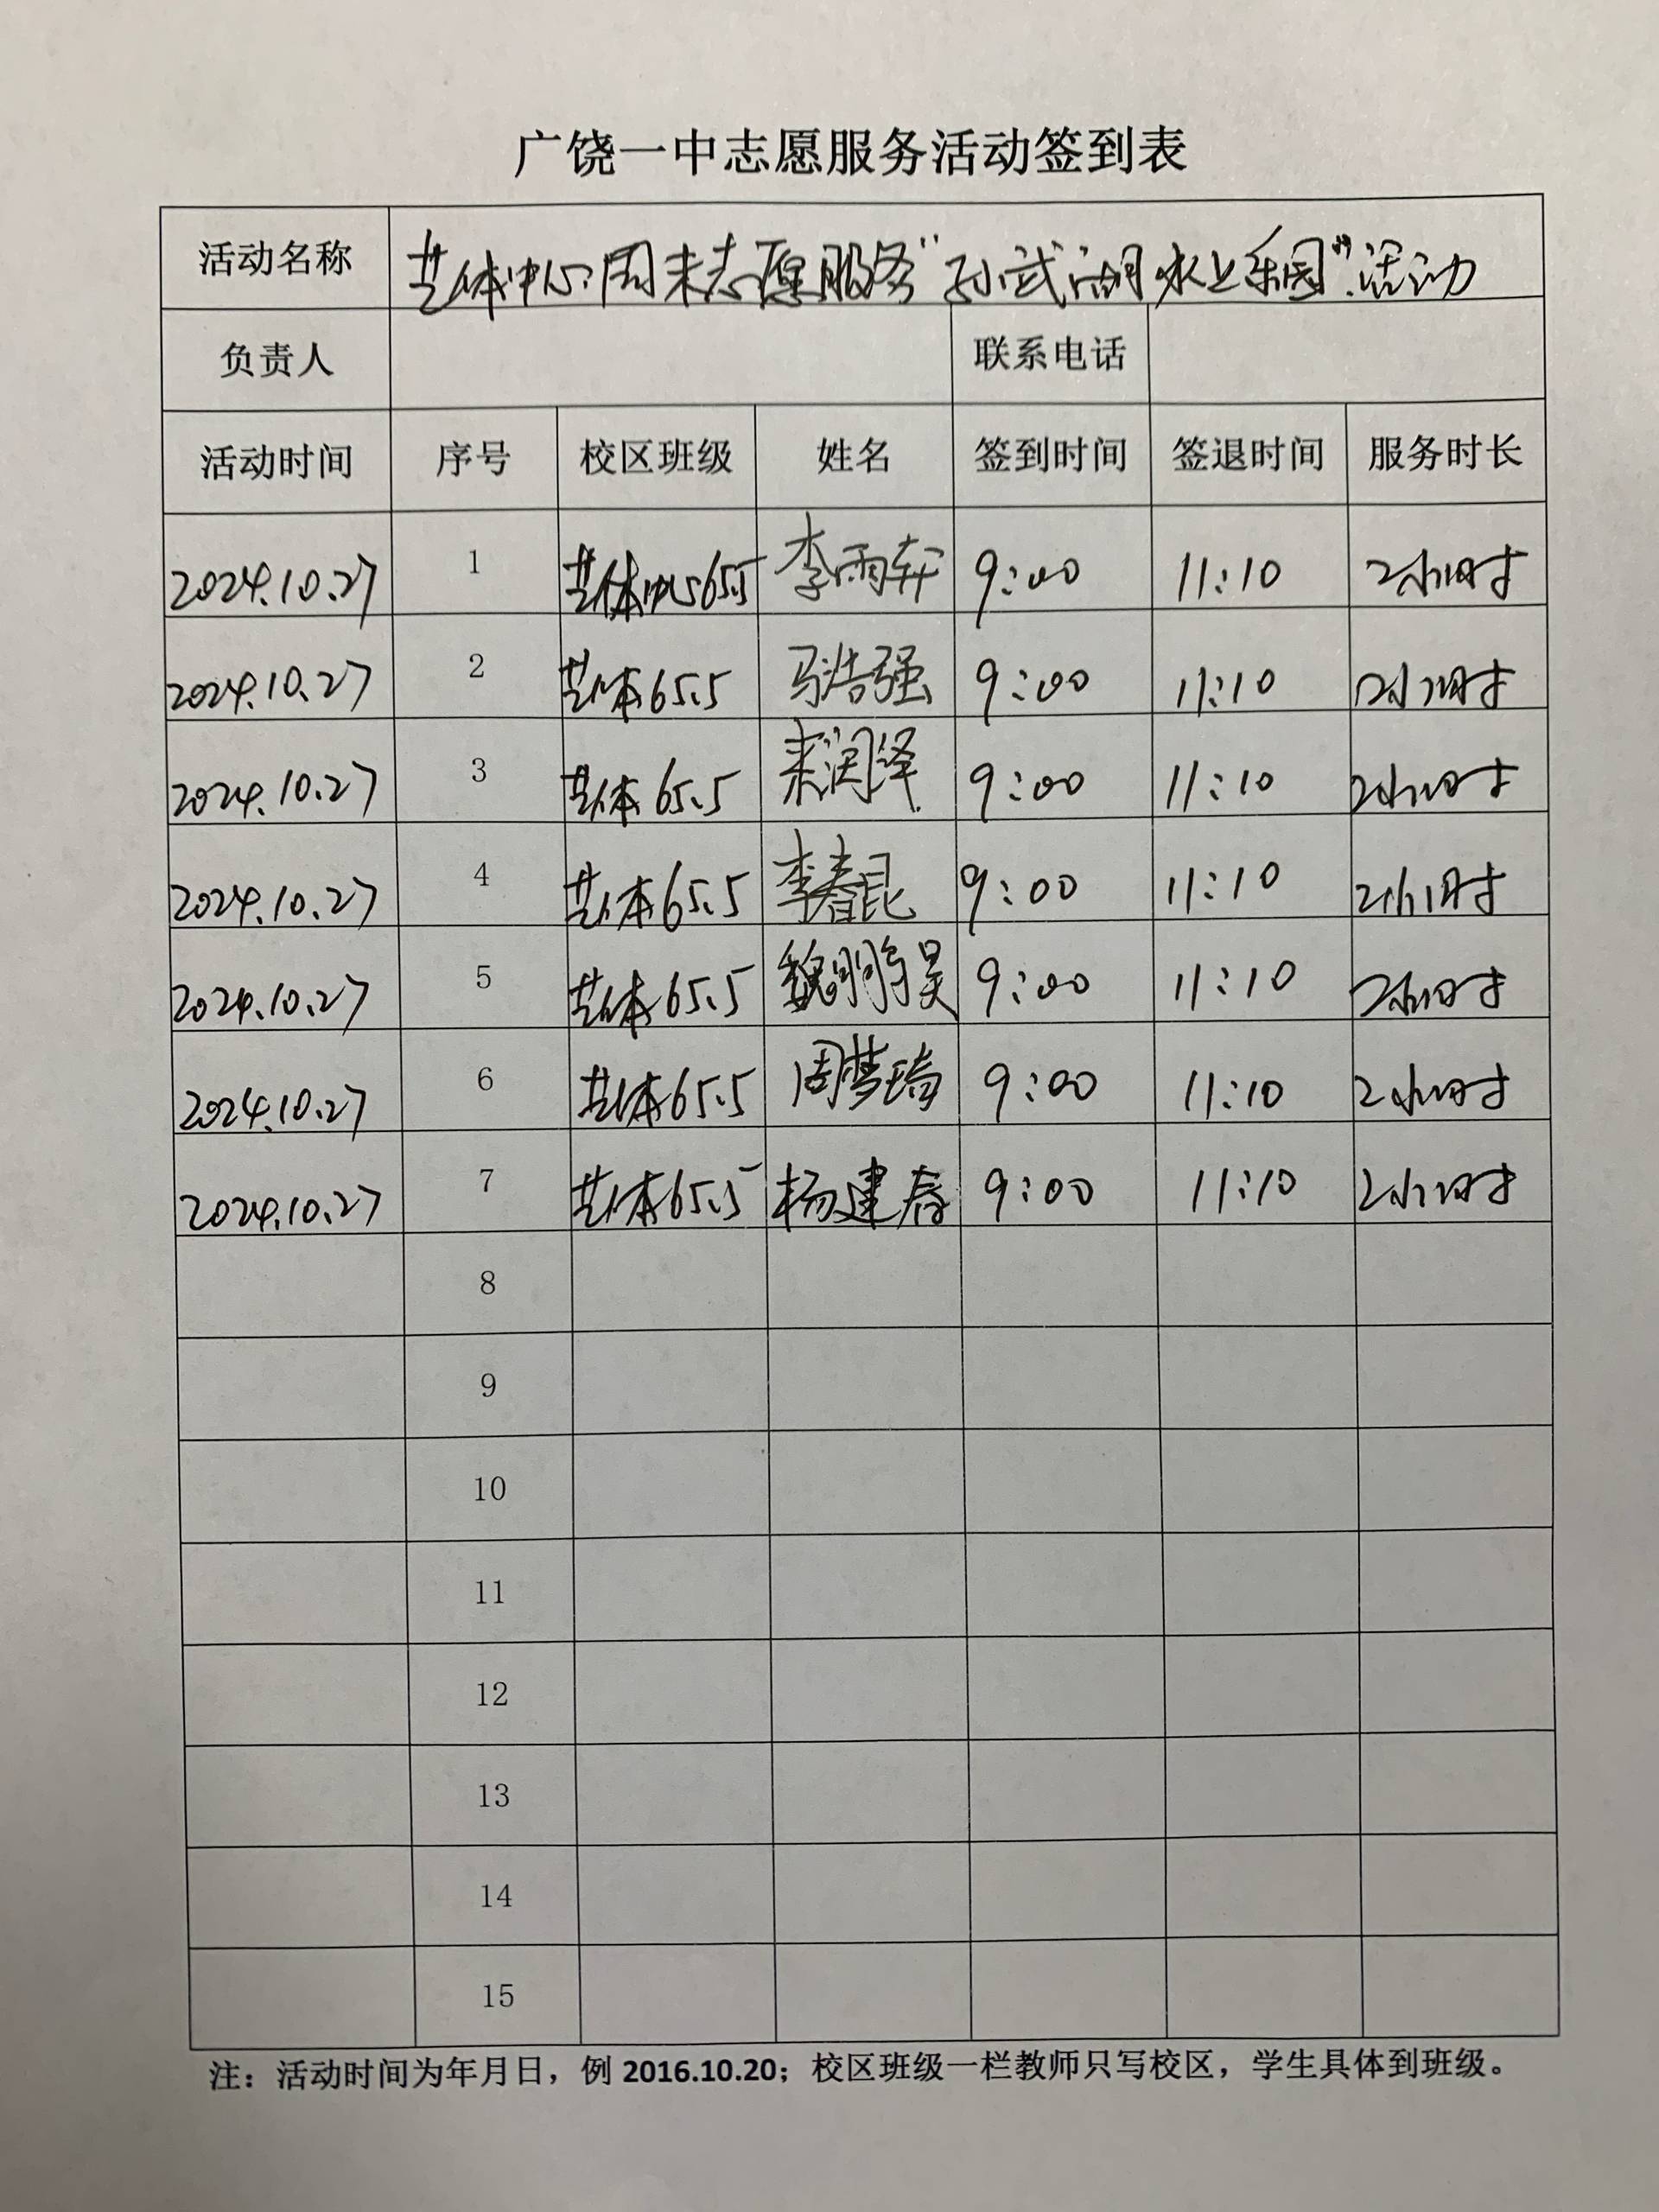 广饶一中志愿服务活动签到表
活动名称 艺体中心周末志愿服务“孙武湖水上乐园”活动
负责人 联系电话
活动时间 序号 校区班级 姓名 签到时间 签退时间 服务时长
2024.10.27 1 艺体中心65.5 李雨轩 9:00 11:10 2小时
2024.10.27 2 艺体65.5 马浩强 9:00 11:10 2小时
2024.10.27 3 艺体65.5 来润泽 9:00 11:10 2小时
2024.10.27 4 艺体65.5 李春昆 9:00 11:10 2小时
2024.10.27 5 艺体65.5 魏鹏昊 9:00 11:10 2小时
2024.10.27 6 艺体65.5 周梦琦 9:00 11:10 2小时
2024.10.27 7 艺体65.5 杨建春 9:00 11:10 2小时
8
9
10
11
12
13
14
15
注：活动时间为年月日，例 2016.10.20；校区班级一栏教师只写校区，学生具体到班级。